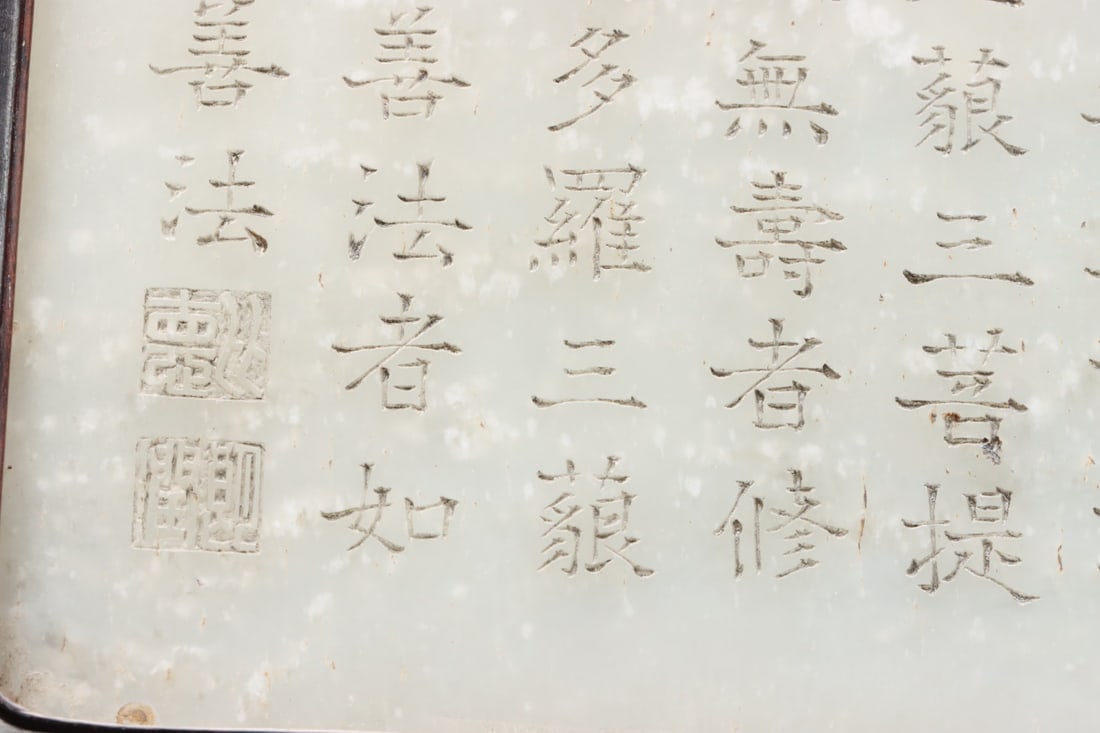 藐三菩提
無壽者修
多羅三藐
善法者如
善法
比德
朗潤